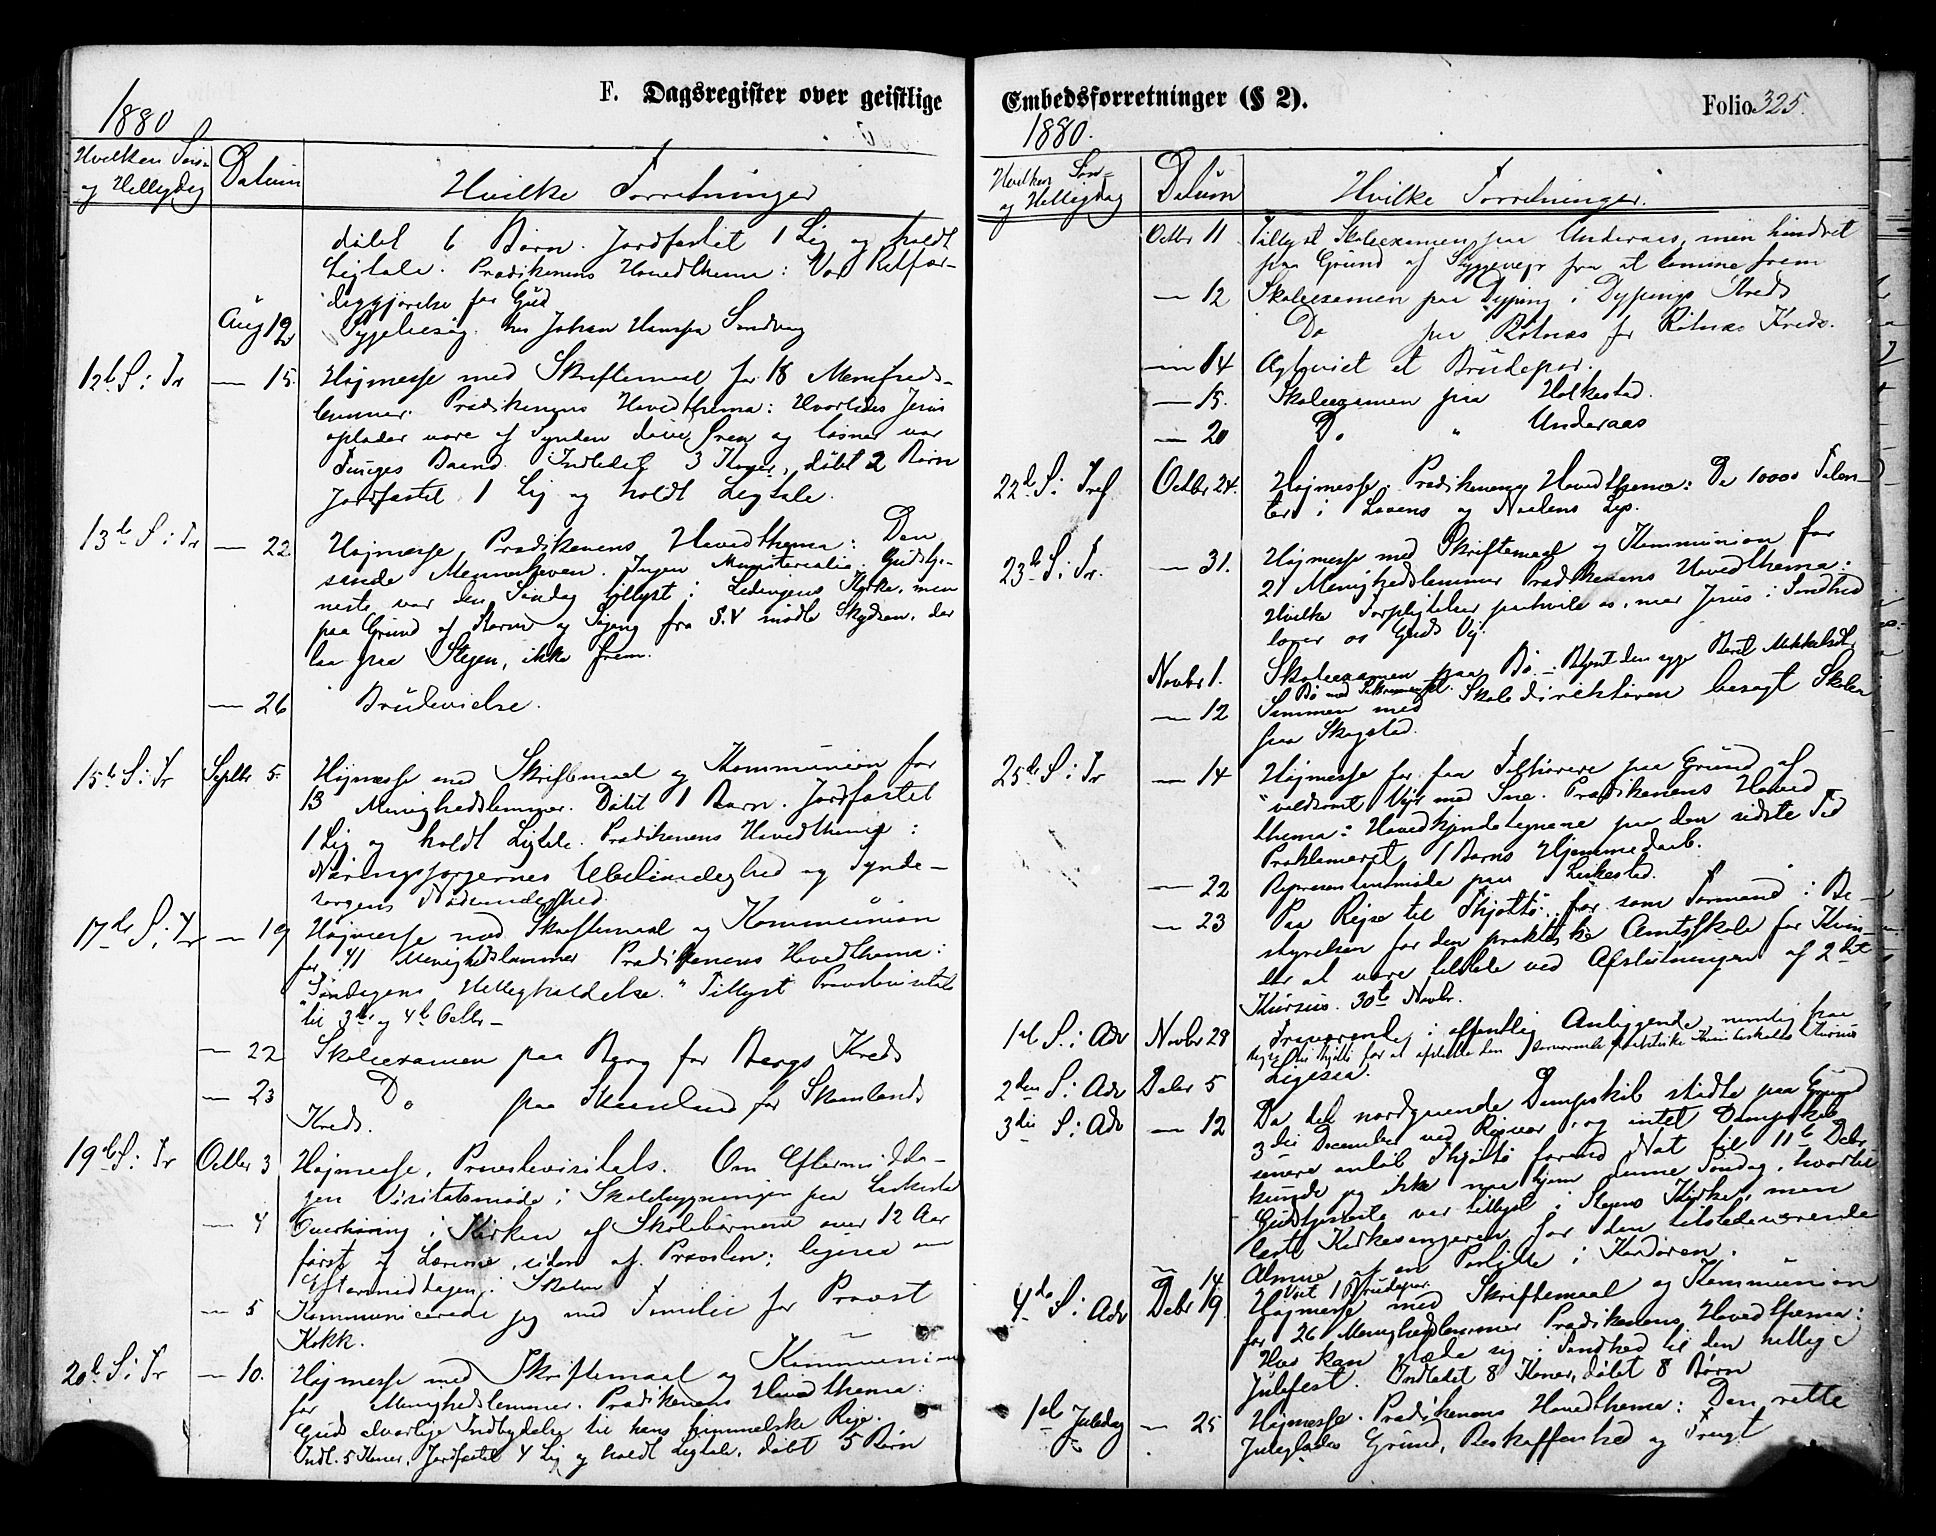 F. Dagsregister over geistlige
1880
Hvilken Søn- og Helligdag
Datum
Hvilke Forretninger
døbt 6 Børn. Jordfæstet 1 Lig og holdt
Ligtale. Prædikenens Hovedthema: Vor Retfær-
diggjørelse for Gud
Aug 12 Sygebesøg hos Johan Hansen
12te S: Tr — 15. Højmesse med Skriftemaal for 18 Menigheds-
lemmer. Prædikenens Hovedthema: Hvorledes Jesus
oplader vore af Synden døve Øren og løsner vor
Tunges Baand. Indledet 3 Koner, døbt 2 Børn
Jordfæstet 1 Lig og holdt Ligtale.
13de S: Tr — 22. Højmesse, Prædikenens Hovedthema: Den
sande Menneskeven. Ingen Ministerialia. Gudstje-
neste var den Søndag tillyst i Ledingens Kirke, men
paa Grund af Storm og Søgang fra S.V mødte Skydsen, der
laa paa Stegen, ikke frem.
— 26 Brudevielse.
15de S: Tr Septbr 5. Højmesse med Skriftemaal og Kommunion for
13 Menighedslemmer. Døbt 1 Barn. Jordfæstet
1 Lig og holdt Ligtale. Prædikenens Hovedthema:
Næringssorgernes Ubetimelighed og Synde-
sorgens Nødvendighed.
17de S: Tr — 19 Højmesse med Skriftemaal og Kommunion
for 41 Menighedslemmer Prædikenens Hovedthema:
"Søndagens Helligholdelse." Tillyst Provstevisitats
til 3die og 4de Octbr —
— 22 Skoleexamen paa Berg for Bergs Kreds
— 23 Do paa Skanland for Skanlands
Kreds.
19de S: Tr Octbr 3 Højmesse, Provstevisitats. Om Eftermidda-
gen Visitatsmøde i Skolebygningen paa Leskestad
— 4 Overhøring i Kirken af Skolebørnene over 12 Aar
først af Lærerne, siden af Provsten; ligesaa om
Eftermiddagen i Skolen
— 5 Kommunicerede jeg med Familie for Provst
Kokk.
20de S: Tr — 10. Højmesse med Skriftemaal og Kommunion
for Menighedslemmer. Prædikenens Hovedthema:
Guds alvorlige Indbydelse til hans himmelske Rige.
Indl. 5 Koner, Jordfæstet 4 Lig og holdt Ligtale, døbt 5 Børn
Embedsforretninger (§ 2).
Folio 325.
1880.
Hvilken Søn- og Helligdag
Datum
Hvilke Forretninger.
Octbr 11. Tillyst Skoleexamen paa Underaas, men hindret
paa Grund af Sygevejr fra at komme frem
— 12 Skoleexamen paa Dyping i Dypings Kreds
Do paa Røtnæs for Røtnæs Kreds.
— 14 Ægteviet et Brudepar.
— 15. Skoleexamen paa Holkestad.
— 20 Do " Underaas
22de S: Tref. Octbr 24. Højmesse. Prædikenens Hovedthema: De 10000 Talen-
ter i Lovens og Naadens Lys.
23de S: Tr. — 31. Højmesse med Skriftemaal og Kommunion for
21 Menighedslemmer Prædikenens Hovedthema:
Hvilke Forpligtelser paahvile os, naar Jesus i Sandhed
lærer os Guds Vej.
Novbr 1. Skoleexamen paa Bø. — Betjent den syge Berit Mikkelsdt.
Bø med Sakramentet.
— 12 Sammen med Skoledirektøren besøgt Skolen
paa Skagstad.
25de S: Tr — 14 Højmesse for faa Tilhørere paa Grund af
voldsomt Vejr med Sne. Prædikenens Hoved
thema: Hovedkjendetegnene paa den sidste Tid
Proklameret 1 Barns Hjemmedaab.
— 22 Repræsentantmøde paa Leskestad.
— 23 Paa Rejse til Thjøttø, for som Formand i Be-
styrelsen for den praktiske Amtsskole for Kvin-
der at være tilstede ved Afslutningen af 2det
Kursus. 30te Novbr.
1ste S: Adv Novbr 28 Fraværende i offentlig Anliggende, nemlig paa
Rejse til Thjøttø for at afslutte den derværende praktiske Kvindeskoles Kursus
2den S: Adv Decbr 5 Ligesaa.
3die S: Adv — 12 Da det nordgaaende Dampskib stødte paa Grund
3die December ved Rosvær, og intet Dampskib
senere anløb Thjøttø førend Nat til 11te Decbr
kunde jeg ikke naa hjem denne Søndag, hvortil
Gudstjeneste var tillyst i Stegens Kirke, men
læste Kirkesangeren for den tilstedeværende
Almue af en Postille i Kordøren.
— 14 Viet 1 Brudepar.
4de S: Adv Decbr 19. Højmesse med Skriftemaal og Kommunion
for 26 Menighedslemmer Prædikenens Hovedthema:
Hvo kan glæde sig i Sandhed til den hellige
Julefest. Indledet 8 Koner, døbt 8 Børn
1ste Juledag — 25 Højmesse. Prædikenens Hovedthema: Den rette
Juleglædes Grund, Beskaffenhed og Frugt